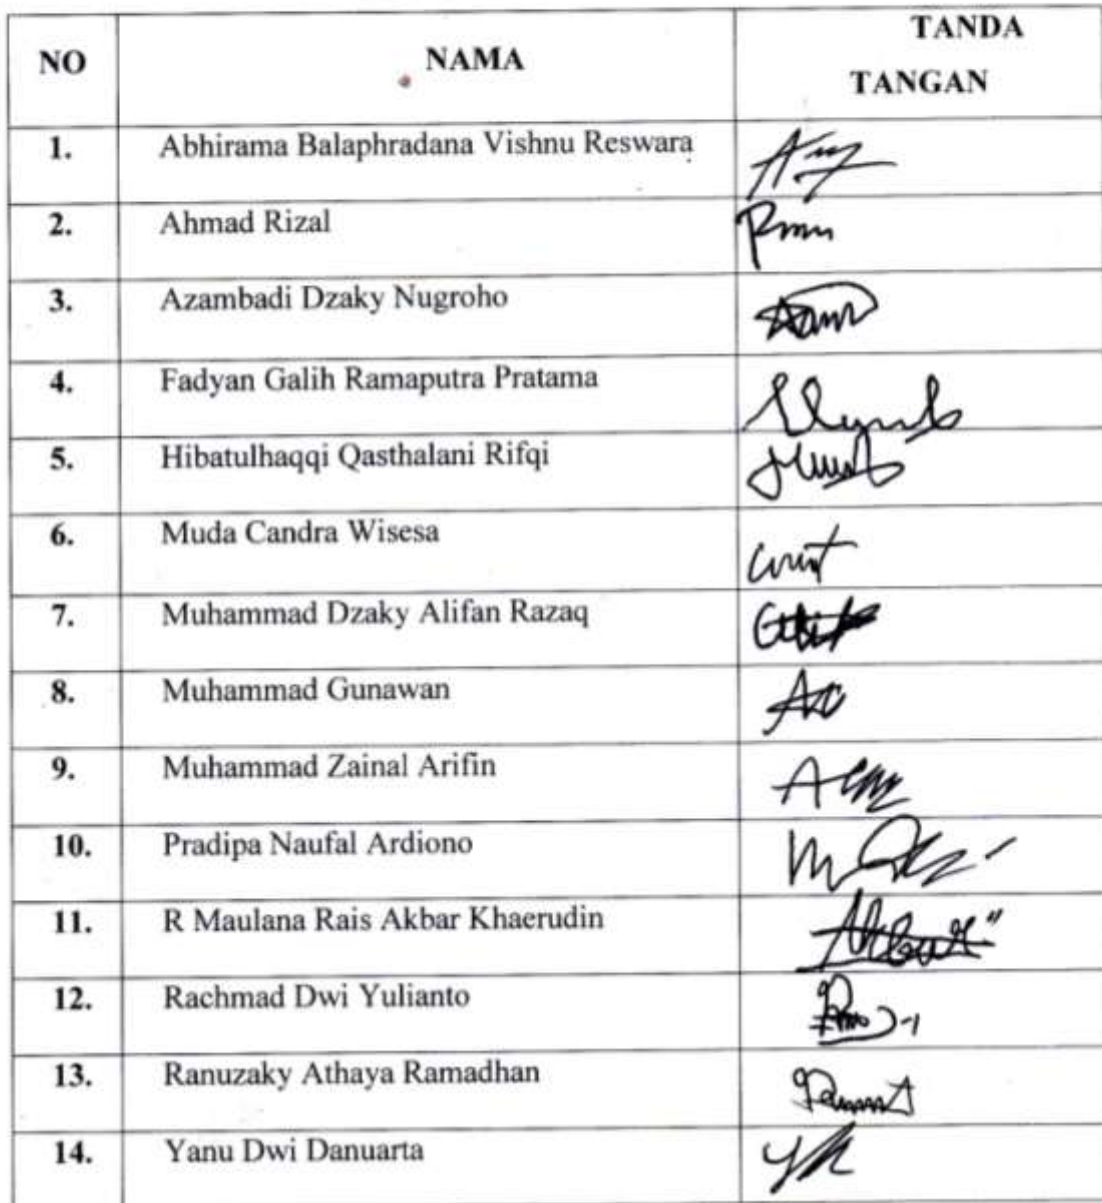 NO NAMA TANDA
TANGAN
1. Abhirama Balaphradana Vishnu Reswara
2. Ahmad Rizal
3. Azambadi Dzaky Nugroho
4. Fadyan Galih Ramaputra Pratama
5. Hibatulhaqqi Qasthalani Rifqi
6. Muda Candra Wisesa
7. Muhammad Dzaky Alifan Razaq
8. Muhammad Gunawan
9. Muhammad Zainal Arifin
10. Pradipa Naufal Ardiono
11. R Maulana Rais Akbar Khaerudin
12. Rachmad Dwi Yulianto
13. Ranuzaky Athaya Ramadhan
14. Yanu Dwi Danuarta